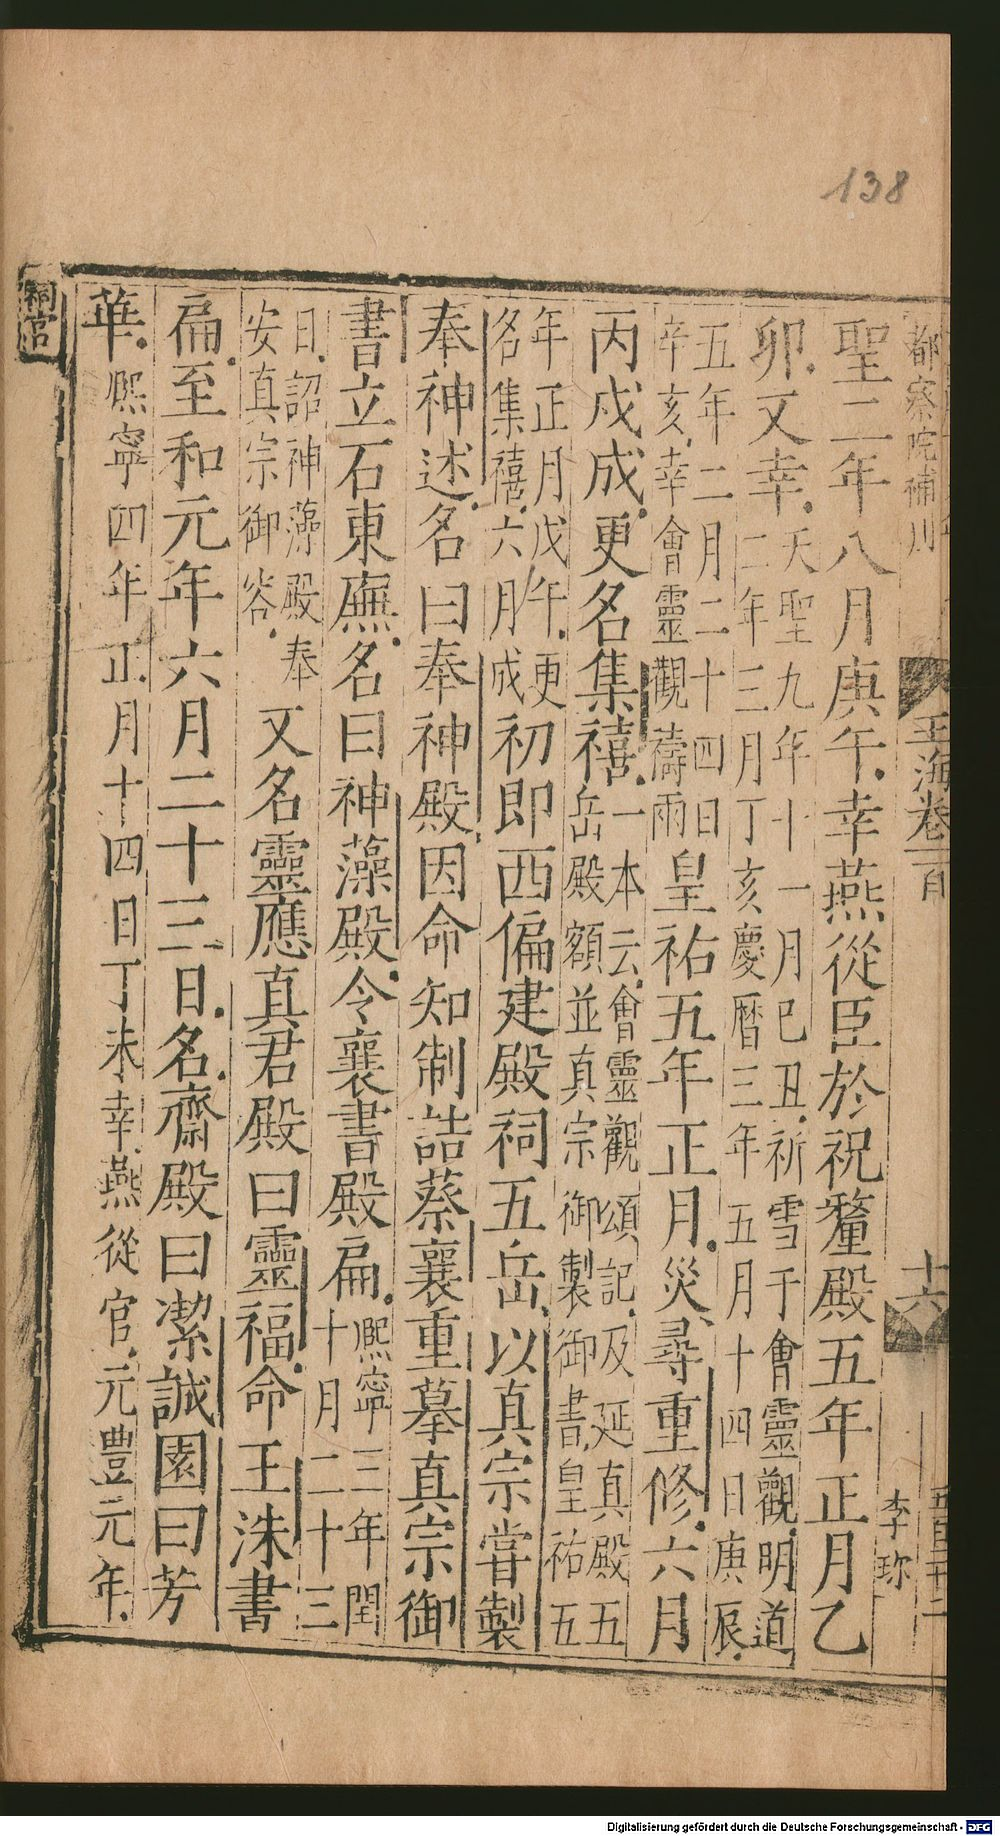 138
都察院補刊
玉海卷一百
十六
李珎
聖二年八月庚午幸燕從臣於祝釐殿五年正月乙
卯又幸天聖九年十一月已丑祈雪于會靈觀明道
二年三月丁亥慶曆三年五月十四日庚辰
五年二月二十四日
辛亥幸會靈觀禱雨皇祐五年正月災尋重修六月
丙戌成更名集禧一本云會靈觀頌記及延真殿五
岳殿額並真宗御製御書皇祐五
年正月戊午更
名集禧六月成初即西偏建殿祠五岳以真宗嘗製
奉神述名曰奉神殿因命知制誥蔡襄重摹真宗御
書立石東廡名曰神藻殿令襄書殿扁熙寧三年閏
十月二十三
日詔神藻殿奉
安真宗御容又名靈應真君殿曰靈福命王洙書
扁至和元年六月二十三日名齋殿曰潔誠園曰芳
華熙寧四年正月十四日丁未幸燕從官元豊元年
祠宫
Digitalisierung gefördert durch die Deutsche Forschungsgemeinschaft - DFG